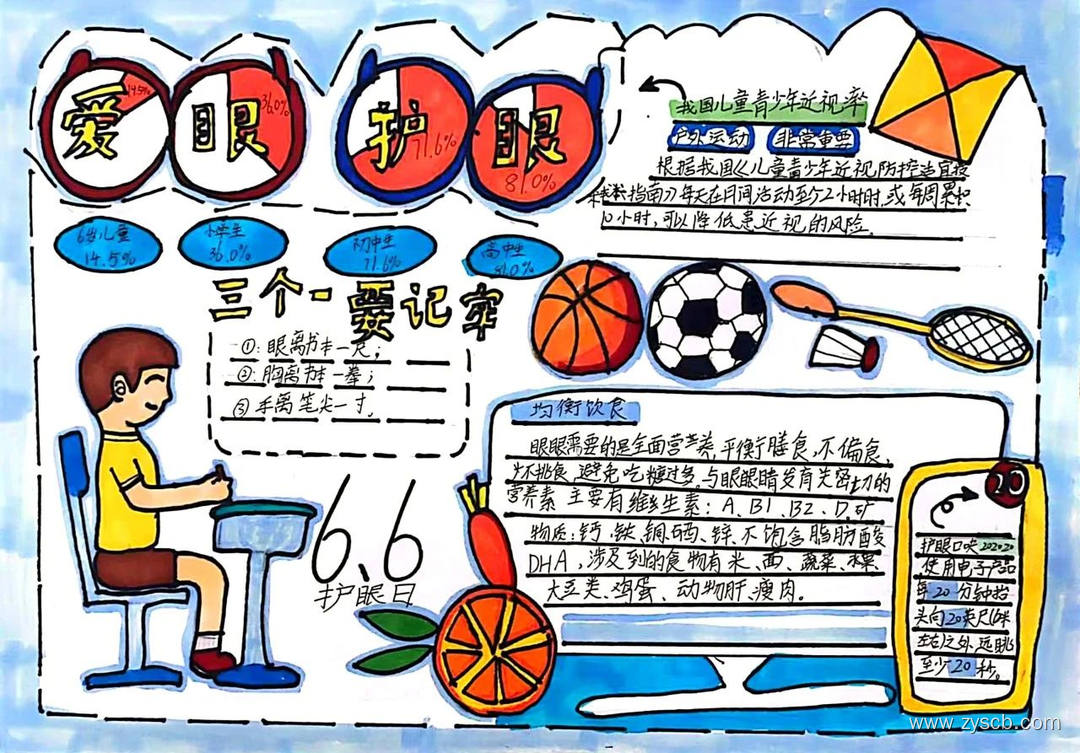 爱眼护眼
14.5%
36.0%
71.6%
81.0%
6岁儿童
14.5%
小学生
36.0%
初中生
71.6%
高中生
81.0%
我国儿童青少年近视率
户外运动 非常重要
根据我国《儿童青少年近视防控适宜技
指南》每天在日间活动至少2小时时,或每周累积
10小时,可以降低患近视的风险。
三个一要记牢
①:眼离书本一尺;
②:胸离书本一拳;
③手离笔尖一寸。
6.6
护眼日
均衡饮食
眼眼需要的是全面营养,平衡膳食,不偏食、
不挑食,避免吃糖过多,与眼眼睛发育关密切的
营养素 主要有维生素:A、B1、B2、D,矿
物质:钙、铁、铜、硒、锌、不饱含脂肪酸
DHA,涉及到的食物有米、面、蔬菜、水果、
大豆类、鸡蛋、动物肝、瘦肉。
20
护眼口诀202020
使用电子产品
每20分钟抬
头向20英尺(6米
左右)之外远眺
至少20秒。
www.zyscb.com